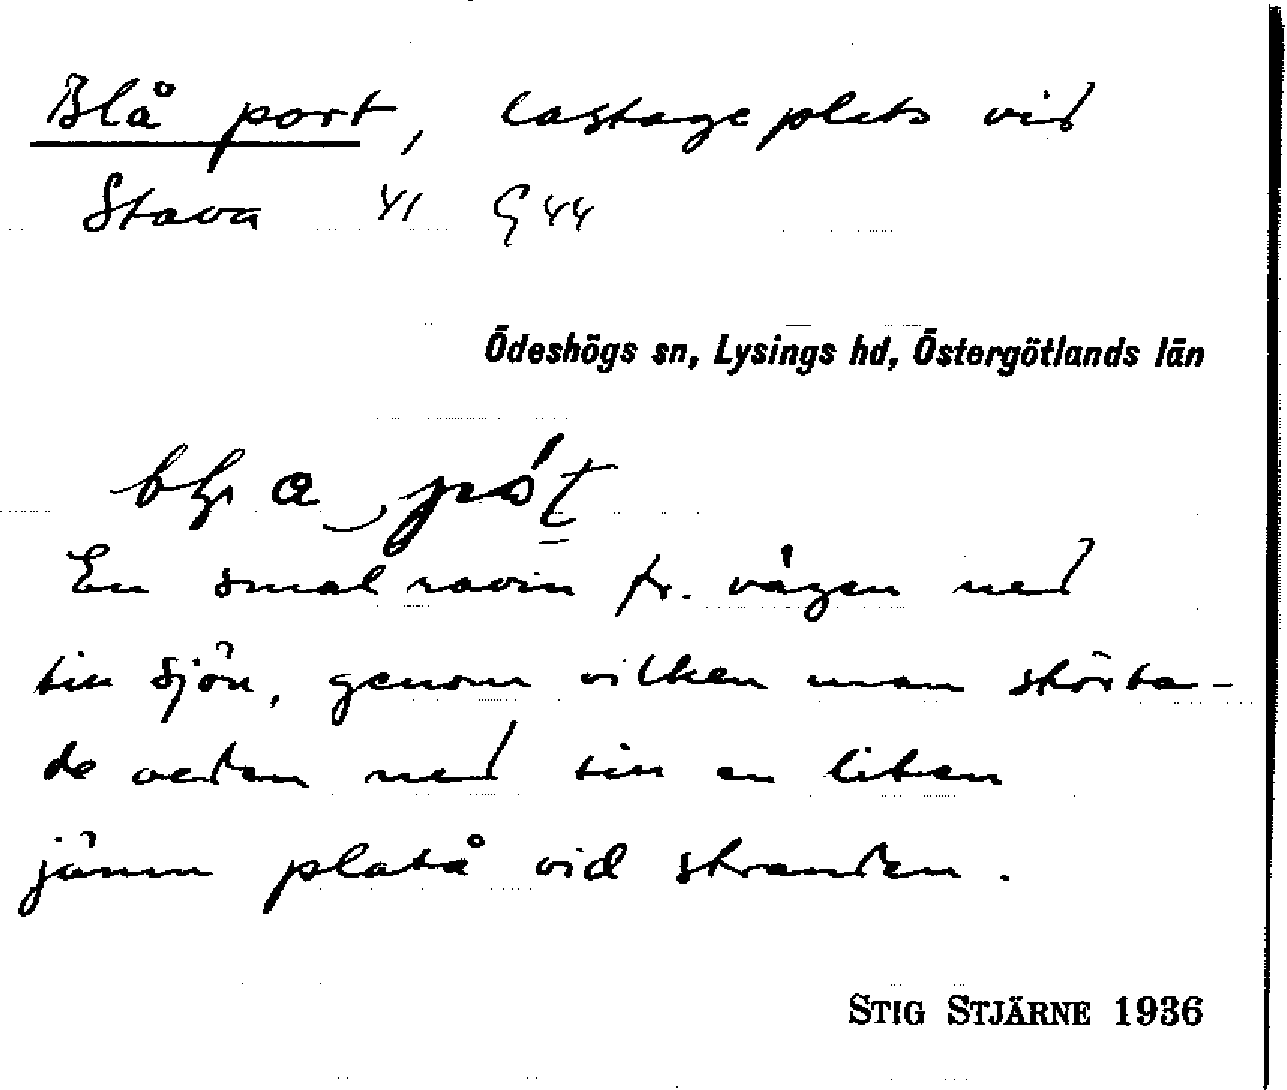 Blå port, lastageplats vid
Stava 41 G 44
Ödeshögs sn, Lysings hd, Östergötlands län
En smal ravin fr. vägen ned
till sjön, genom vilken man störta-
de veden ned till en liten
jämn platå vid stranden.
STIG STJÄRNE 1936